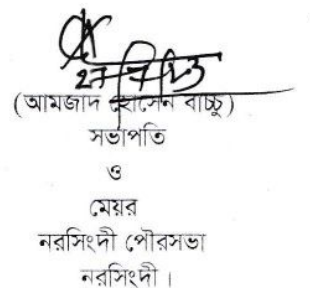 ২৭/৭/২৩
(আমজাদ হোসেন বাচ্চু)
সভাপতি
ও
মেয়র
নরসিংদী পৌরসভা
নরসিংদী।